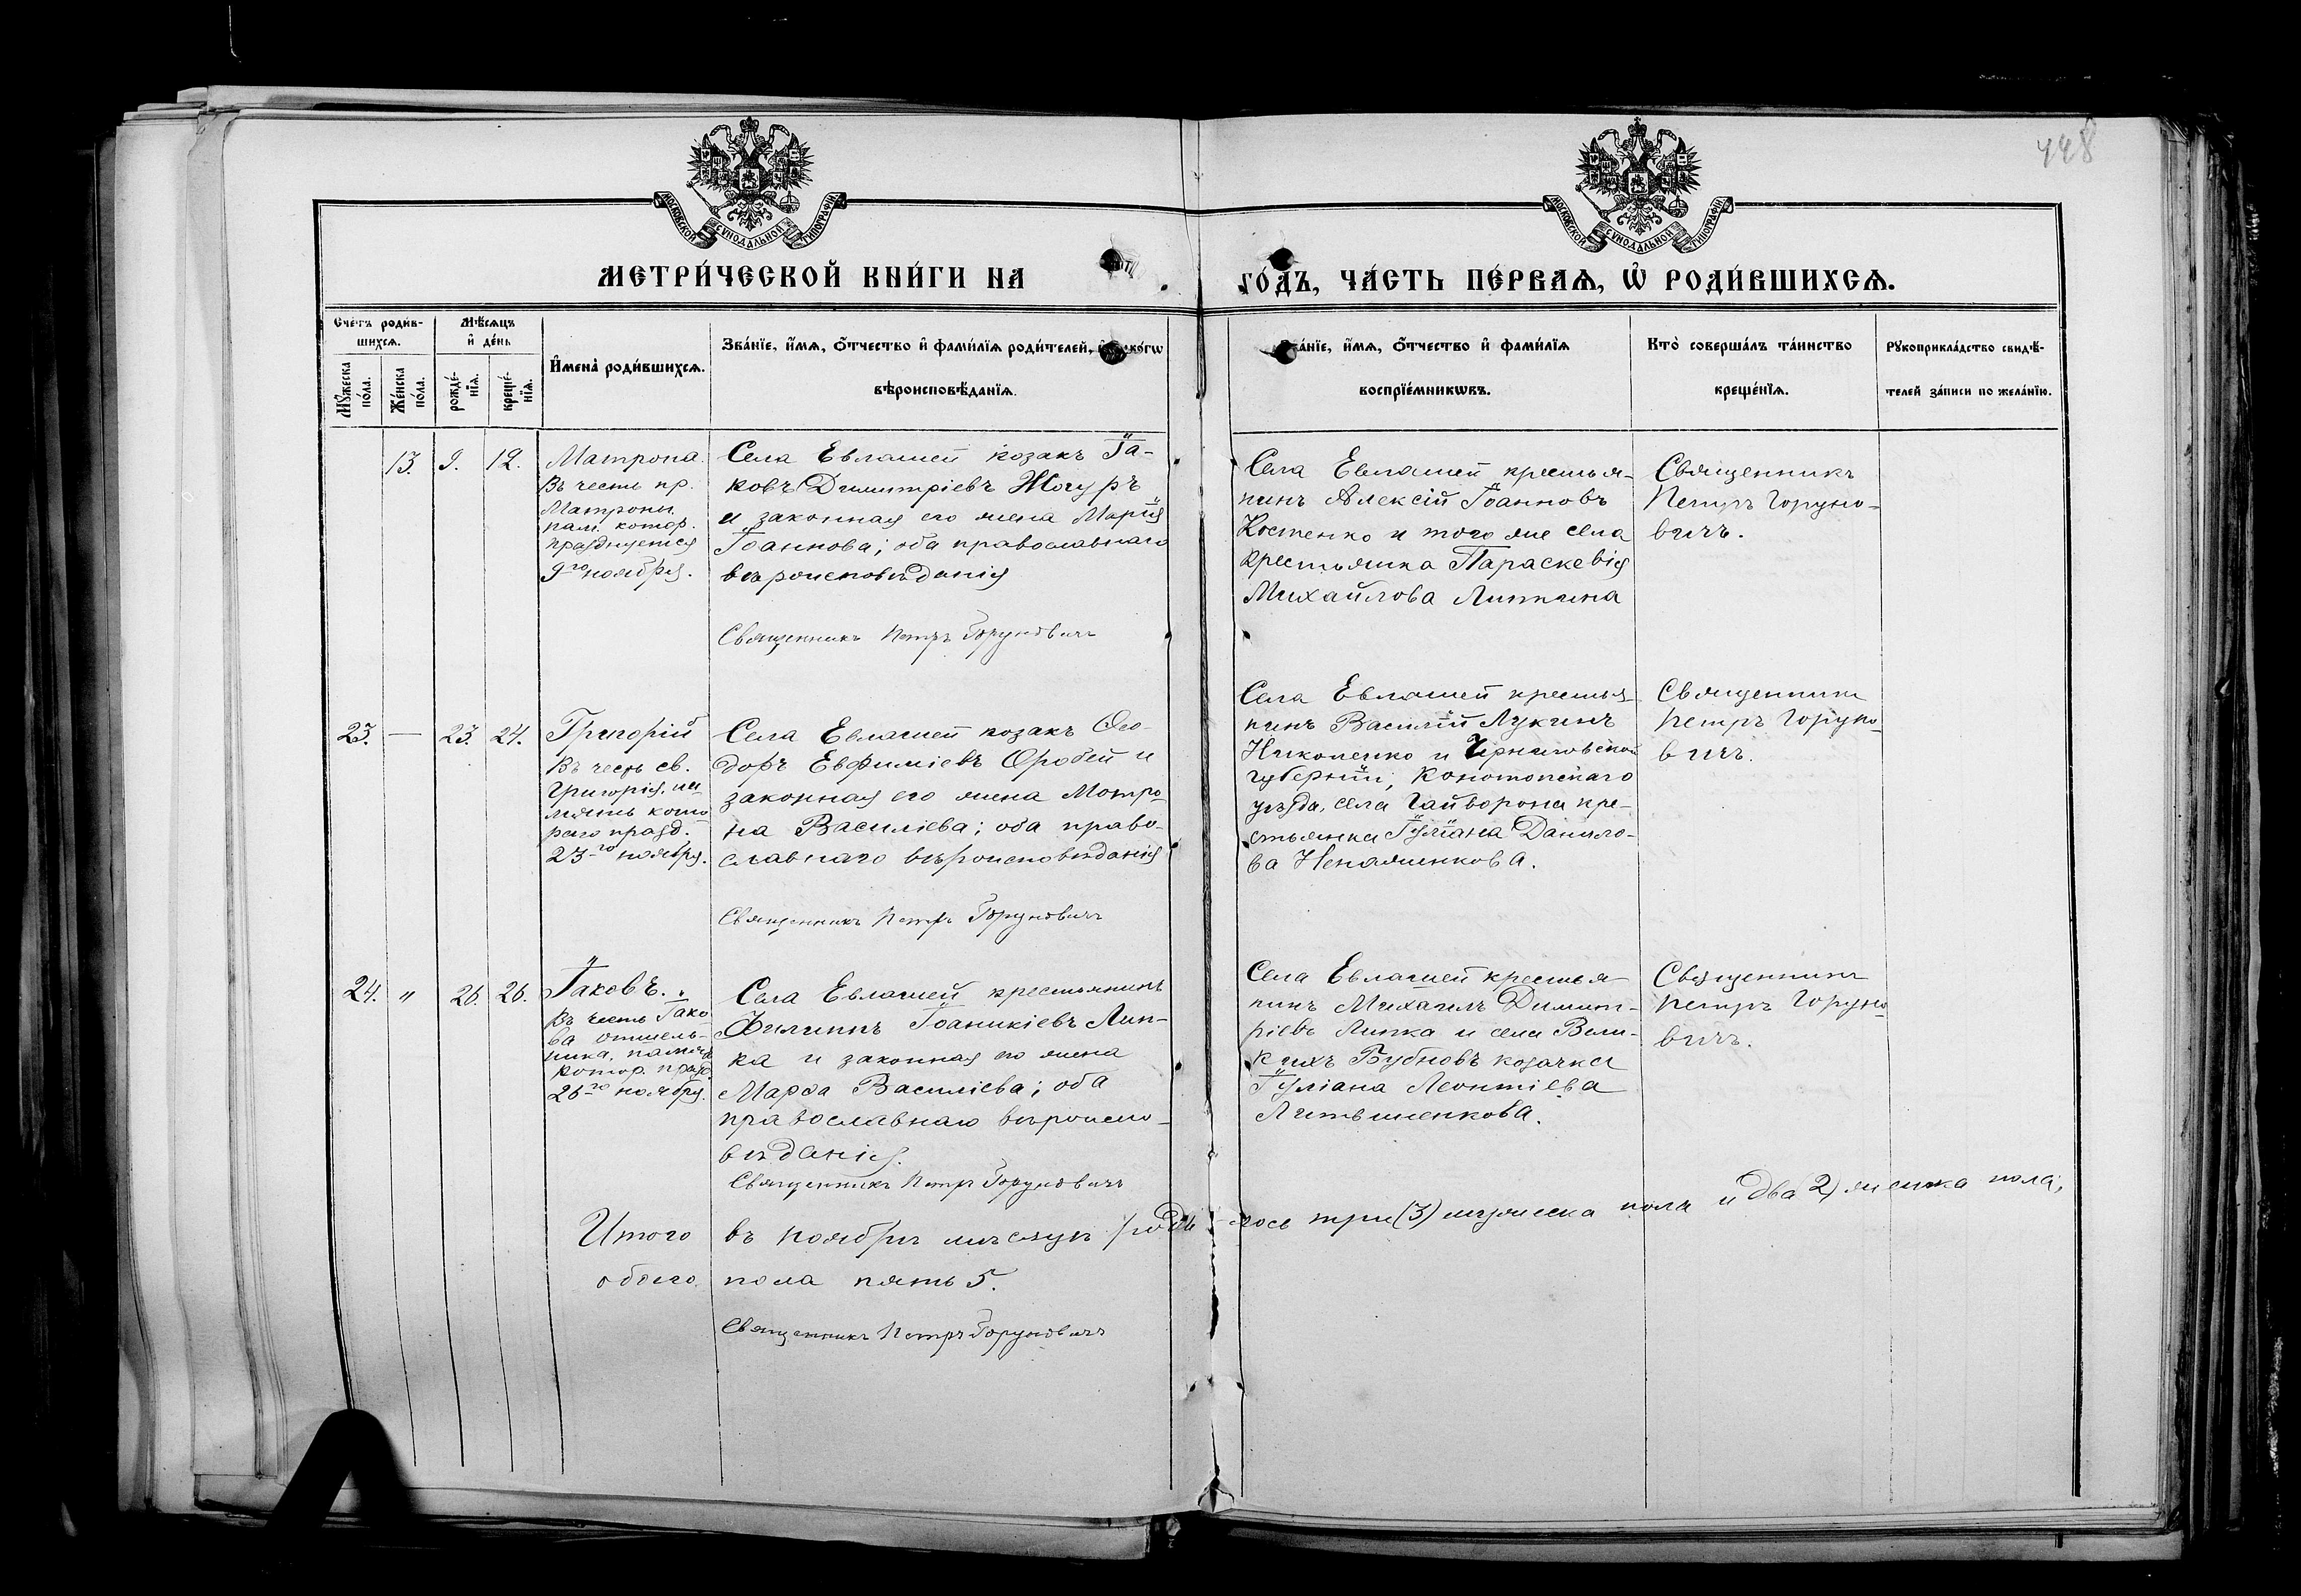 448
МОСКОВСКОЙ СѴНОДАЛЬНОЙ ТИПОГРАФІИ
МОСКОВСКОЙ СѴНОДАЛЬНОЙ ТИПОГРАФІИ
МЕТРИ́ЧЕСКОЙ КНИ́ГИ НА
ГО́ДЪ, ЧА́СТЬ ПЕ́РВАѦ, Ѡ҆ РОДИ́ВШИХСѦ.
Сче́тъ роди́в-
шихсѧ.
Мꙋ́жеска
по́ла.
Же́нска
по́ла.
Мѣ́сѧцъ
и҆ де́нь
рожде́-
нїѧ.
креще́-
нїѧ.
И҆мена̀ роди́вшихсѧ.
Зва́нїе, и҆́мѧ, ѻ҆́тчество и҆ фами́лїѧ роди́телей,
вѣроисповѣ́данїѧ.
Зва́нїе, и҆́мѧ, ѻ҆́тчество и҆ фами́лїѧ
воспрїе́мникѡвъ.
Кто̀ соверша́лъ та́инство
креще́нїѧ.
Рꙋкоприкла́дство свидѣ́-
телей за́писи по жела́нїю.
13. 9. 12.
Матрона.
Въ честь пр.
Матроны
пам. котор.
празднуется
9го ноября.
Села Евлашей козакъ Іа-
ковъ Димитріевъ Жогуръ
и законная его жена Марія
Іоаннова; оба православнаго
вѣроисповѣданія
Священникъ Петръ Горуновичъ
Села Евлашей крестья-
нинъ Алексій Іоанновъ
Костенко и того же села
крестьянка Параскевія
Михайлова Липкина
Священникъ
Петръ Горуно-
вичъ.
23. — 23. 24.
Григорій
Въ честь св.
Григорія, па
мять кото
раго празд.
23-го ноября.
Села Евлашей козакъ Ѳео-
доръ Евфиміевъ Оробей и
законная его жена Мотро-
на Василіева; оба право-
славнаго вѣроисповѣданія
Священникъ Петръ Горуновичъ
Села Евлашей крестья-
нинъ Василій Лукинъ
Никоненко и Черниговской
губерніи, Конотопскаго
уѣзда, села Гайворона кре-
стьянка Іуліана Данило-
ва
Священникъ
Петръ Горуно-
вичъ.
24. " 26. 26.
Іаковъ.
Въ честь Іако
ва отшель-
ника, память
котор. празд.
26-го ноября.
Села Евлашей крестьянинъ
Филиппъ Іоаникіевъ Лип-
ка и законная его жена
Марѳа Василіева; оба
православнаго вѣроиспо-
вѣданія.
Священникъ Петръ Горуновичъ
Села Евлашей крестья-
нинъ Михаилъ Димит-
ріевъ Липка и села Вели-
кихъ Бубновъ козачка
Іуліана Леонтіева
Литвиненкова.
Священникъ
Петръ Горуно-
вичъ.
Итого въ ноябрѣ мѣсяцѣ роди-лось три (3) мужеска пола и два 2) женска пола;
обоего пола пять 5.
Священникъ Петръ Горуновичъ